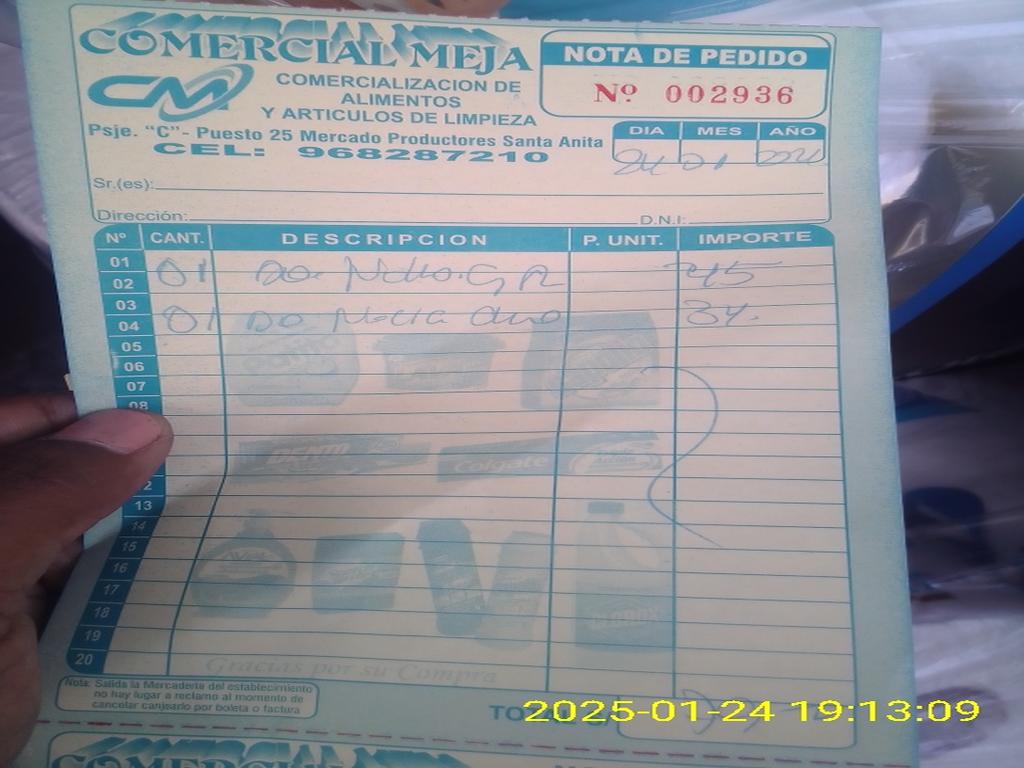 COMERCIAL MEJA
CM
COMERCIALIZACION DE
ALIMENTOS
Y ARTICULOS DE LIMPIEZA
Psje. "C"- Puesto 25 Mercado Productores Santa Anita
CEL: 968287210
NOTA DE PEDIDO
Nº 002936
DIA MES AÑO
24 01
Sr.(es):
Dirección: D.N.I:
Nº CANT. DESCRIPCION P. UNIT. IMPORTE
01
02 01 45
03
04 01 34.
05
06
07
08
DENTO
Colgate
2
13
14
15
16
17
18
19
20
Gracias por su Compra
Nota: Salida la Mercaderia del establecimiento
no hay lugar a reclamo al momento de
cancelar canjearlo por boleta o factura
2025-01-24 19:13:09
COMERCIAL